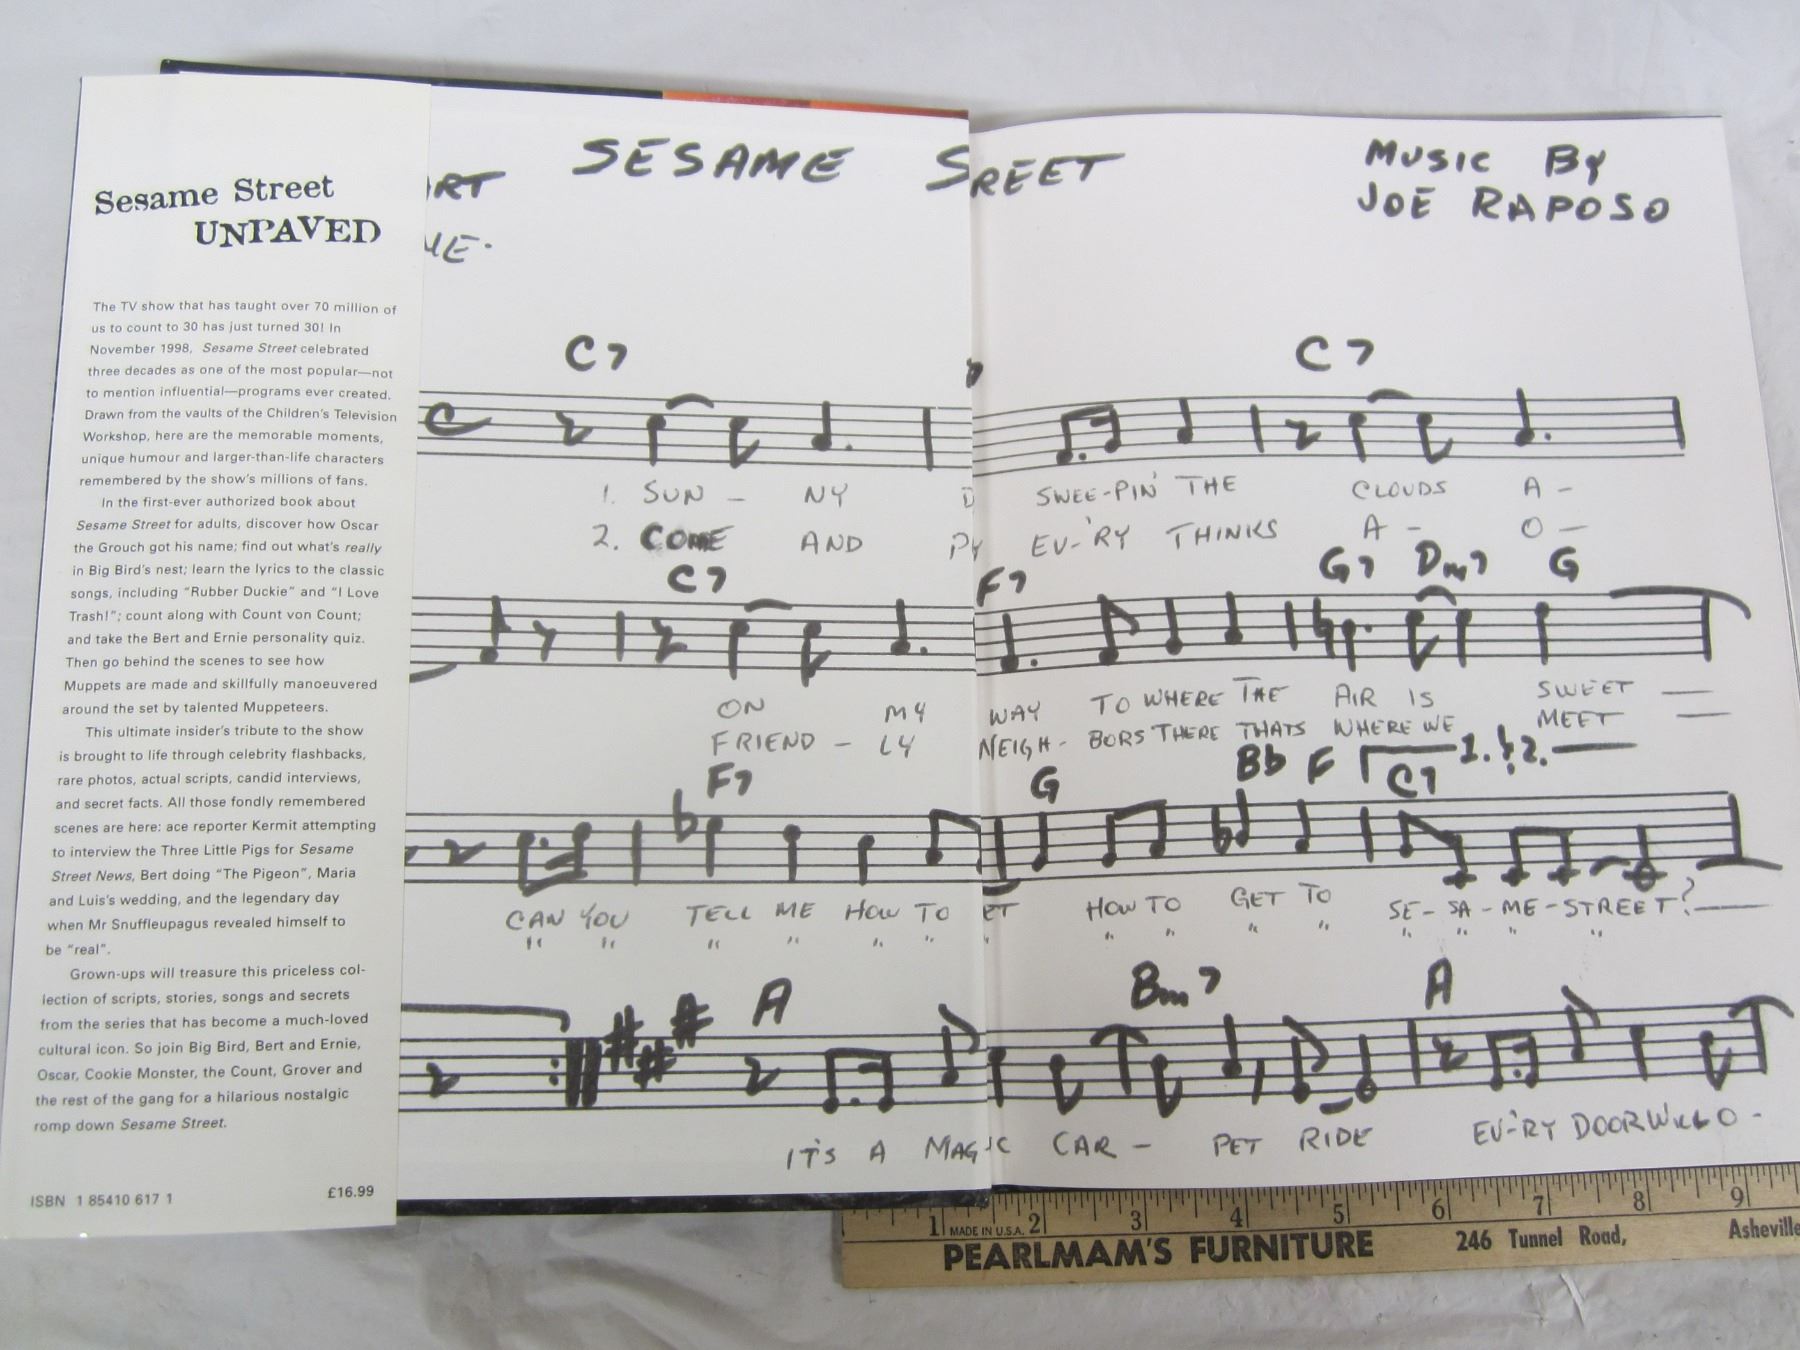 Sesame Street
UNPAVED
The TV show that has taught over 70 million of
us to count to 30 has just turned 30! In
November 1998, Sesame Street celebrated
three decades as one of the most popular—not
to mention influential—programs ever created.
Drawn from the vaults of the Children's Television
Workshop, here are the memorable moments,
unique humour and larger-than-life characters
remembered by the show's millions of fans.
In the first-ever authorized book about
Sesame Street for adults, discover how Oscar
the Grouch got his name; find out what's really
in Big Bird's nest; learn the lyrics to the classic
songs, including "Rubber Duckie" and "I Love
Trash!"; count along with Count von Count;
and take the Bert and Ernie personality quiz.
Then go behind the scenes to see how
Muppets are made and skillfully manoeuvered
around the set by talented Muppeteers.
This ultimate insider's tribute to the show
is brought to life through celebrity flashbacks,
rare photos, actual scripts, candid interviews,
and secret facts. All those fondly remembered
scenes are here: ace reporter Kermit attempting
to interview the Three Little Pigs for Sesame
Street News, Bert doing "The Pigeon", Maria
and Luis's wedding, and the legendary day
when Mr Snuffleupagus revealed himself to
be "real".
Grown-ups will treasure this priceless col-
lection of scripts, stories, songs and secrets
from the series that has become a much-loved
cultural icon. So join Big Bird, Bert and Ernie,
Oscar, Cookie Monster, the Count, Grover and
the rest of the gang for a hilarious nostalgic
romp down Sesame Street.
ISBN 1 85410 617 1 £16.99
SESAME SREET
MUSIC BY
JOE RAPOSO
ART
ME.
C7 C7
1. SUN - NY D SWEE-PIN' THE CLOUDS A -
2. COME AND PY EV-'RY THINKS A - O -
C7 F7 G7 Dm7 G
ON MY WAY TO WHERE THE AIR IS SWEET
FRIEND - LY NEIGH - BORS THERE THATS WHERE WE MEET
F7 G Bb F C7 1. & 2.
CAN YOU TELL ME HOW TO ET HOW TO GET TO SE - SA - ME - STREET?
" " " " " " " " " " " " " " "
A Bm7 A
IT'S A MAGIC CAR - PET RIDE EV-'RY DOOR WILL O -
1 2 3 4 5 6 7 8 9
MADE IN U.S.A.
PEARLMAM'S FURNITURE 246 Tunnel Road, Asheville